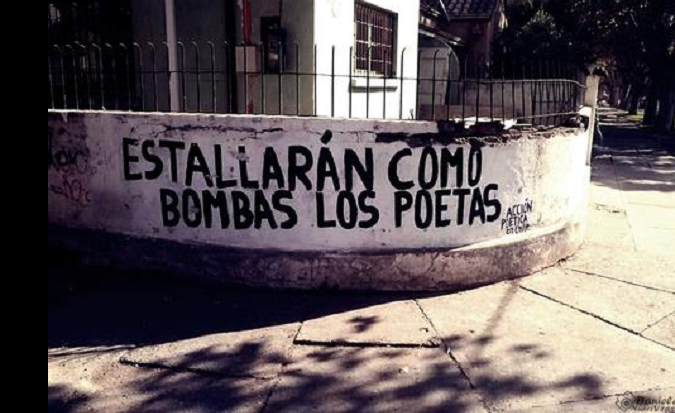 ESTALLARÁN COMO
BOMBAS LOS POETAS
ACCIÓN
POÉTICA